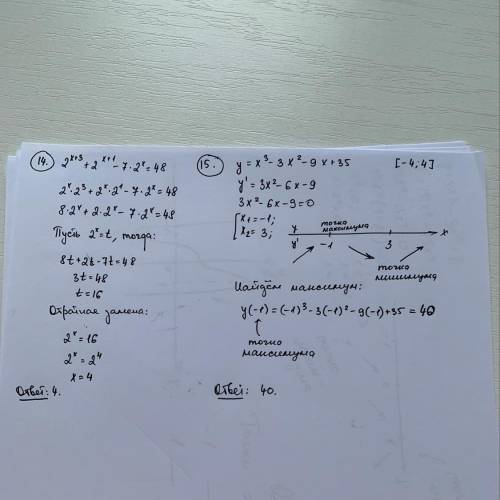 14. 2^(x+3) + 2^(x+1) - 7·2^x = 48
2^x·2^3 + 2^x·2^1 - 7·2^x = 48
8·2^x + 2·2^x - 7·2^x = 48
Пусть 2^x = t, тогда:
8t + 2t - 7t = 48
3t = 48
t = 16
Обратная замена:
2^x = 16
2^x = 2^4
x = 4
Ответ: 4.
15. y = x^3 - 3x^2 - 9x + 35 [-4; 4]
y' = 3x^2 - 6x - 9
3x^2 - 6x - 9 = 0
[ x1 = -1;
x2 = 3;
точка
максимума
y x
y' -1 3
точка
минимума
Найдём максимум:
y(-1) = (-1)^3 - 3(-1)^2 - 9(-1) + 35 = 40
точка
максимума
Ответ: 40.